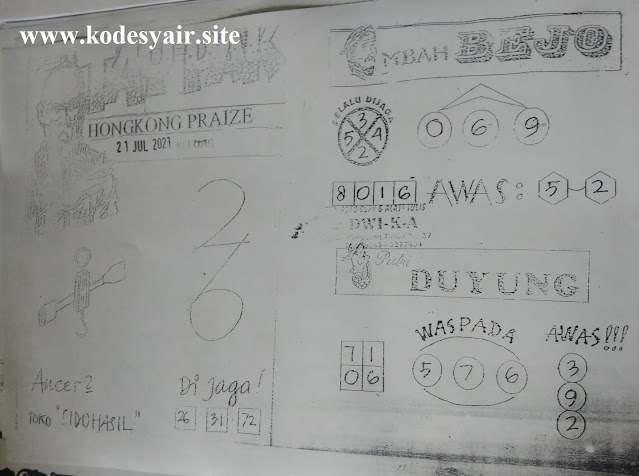 www.kodesyair.site
HONGKONG PRAIZE
21 JUL 2021
2
6
Ancer2
TOKO "SIDOHASIL"
Di jaga!
26 31 72
MBAH BEJO
SELALU DIJAGA
3
5 A
2
0 6 9
8 0 1 6 AWAS: 5 - 2
DWI-K-A
Putri
DUYUNG
7 1
0 6
WASPADA
5 7 6
AWAS!!!
3
9
2